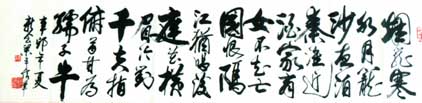 烟笼寒
水月笼
沙夜泊
秦淮近
酒家商
女不知亡
國恨隔
江猶唱後
庭花横
眉冷對
千夫指
俯首甘為
孺子牛
辛卯年夏